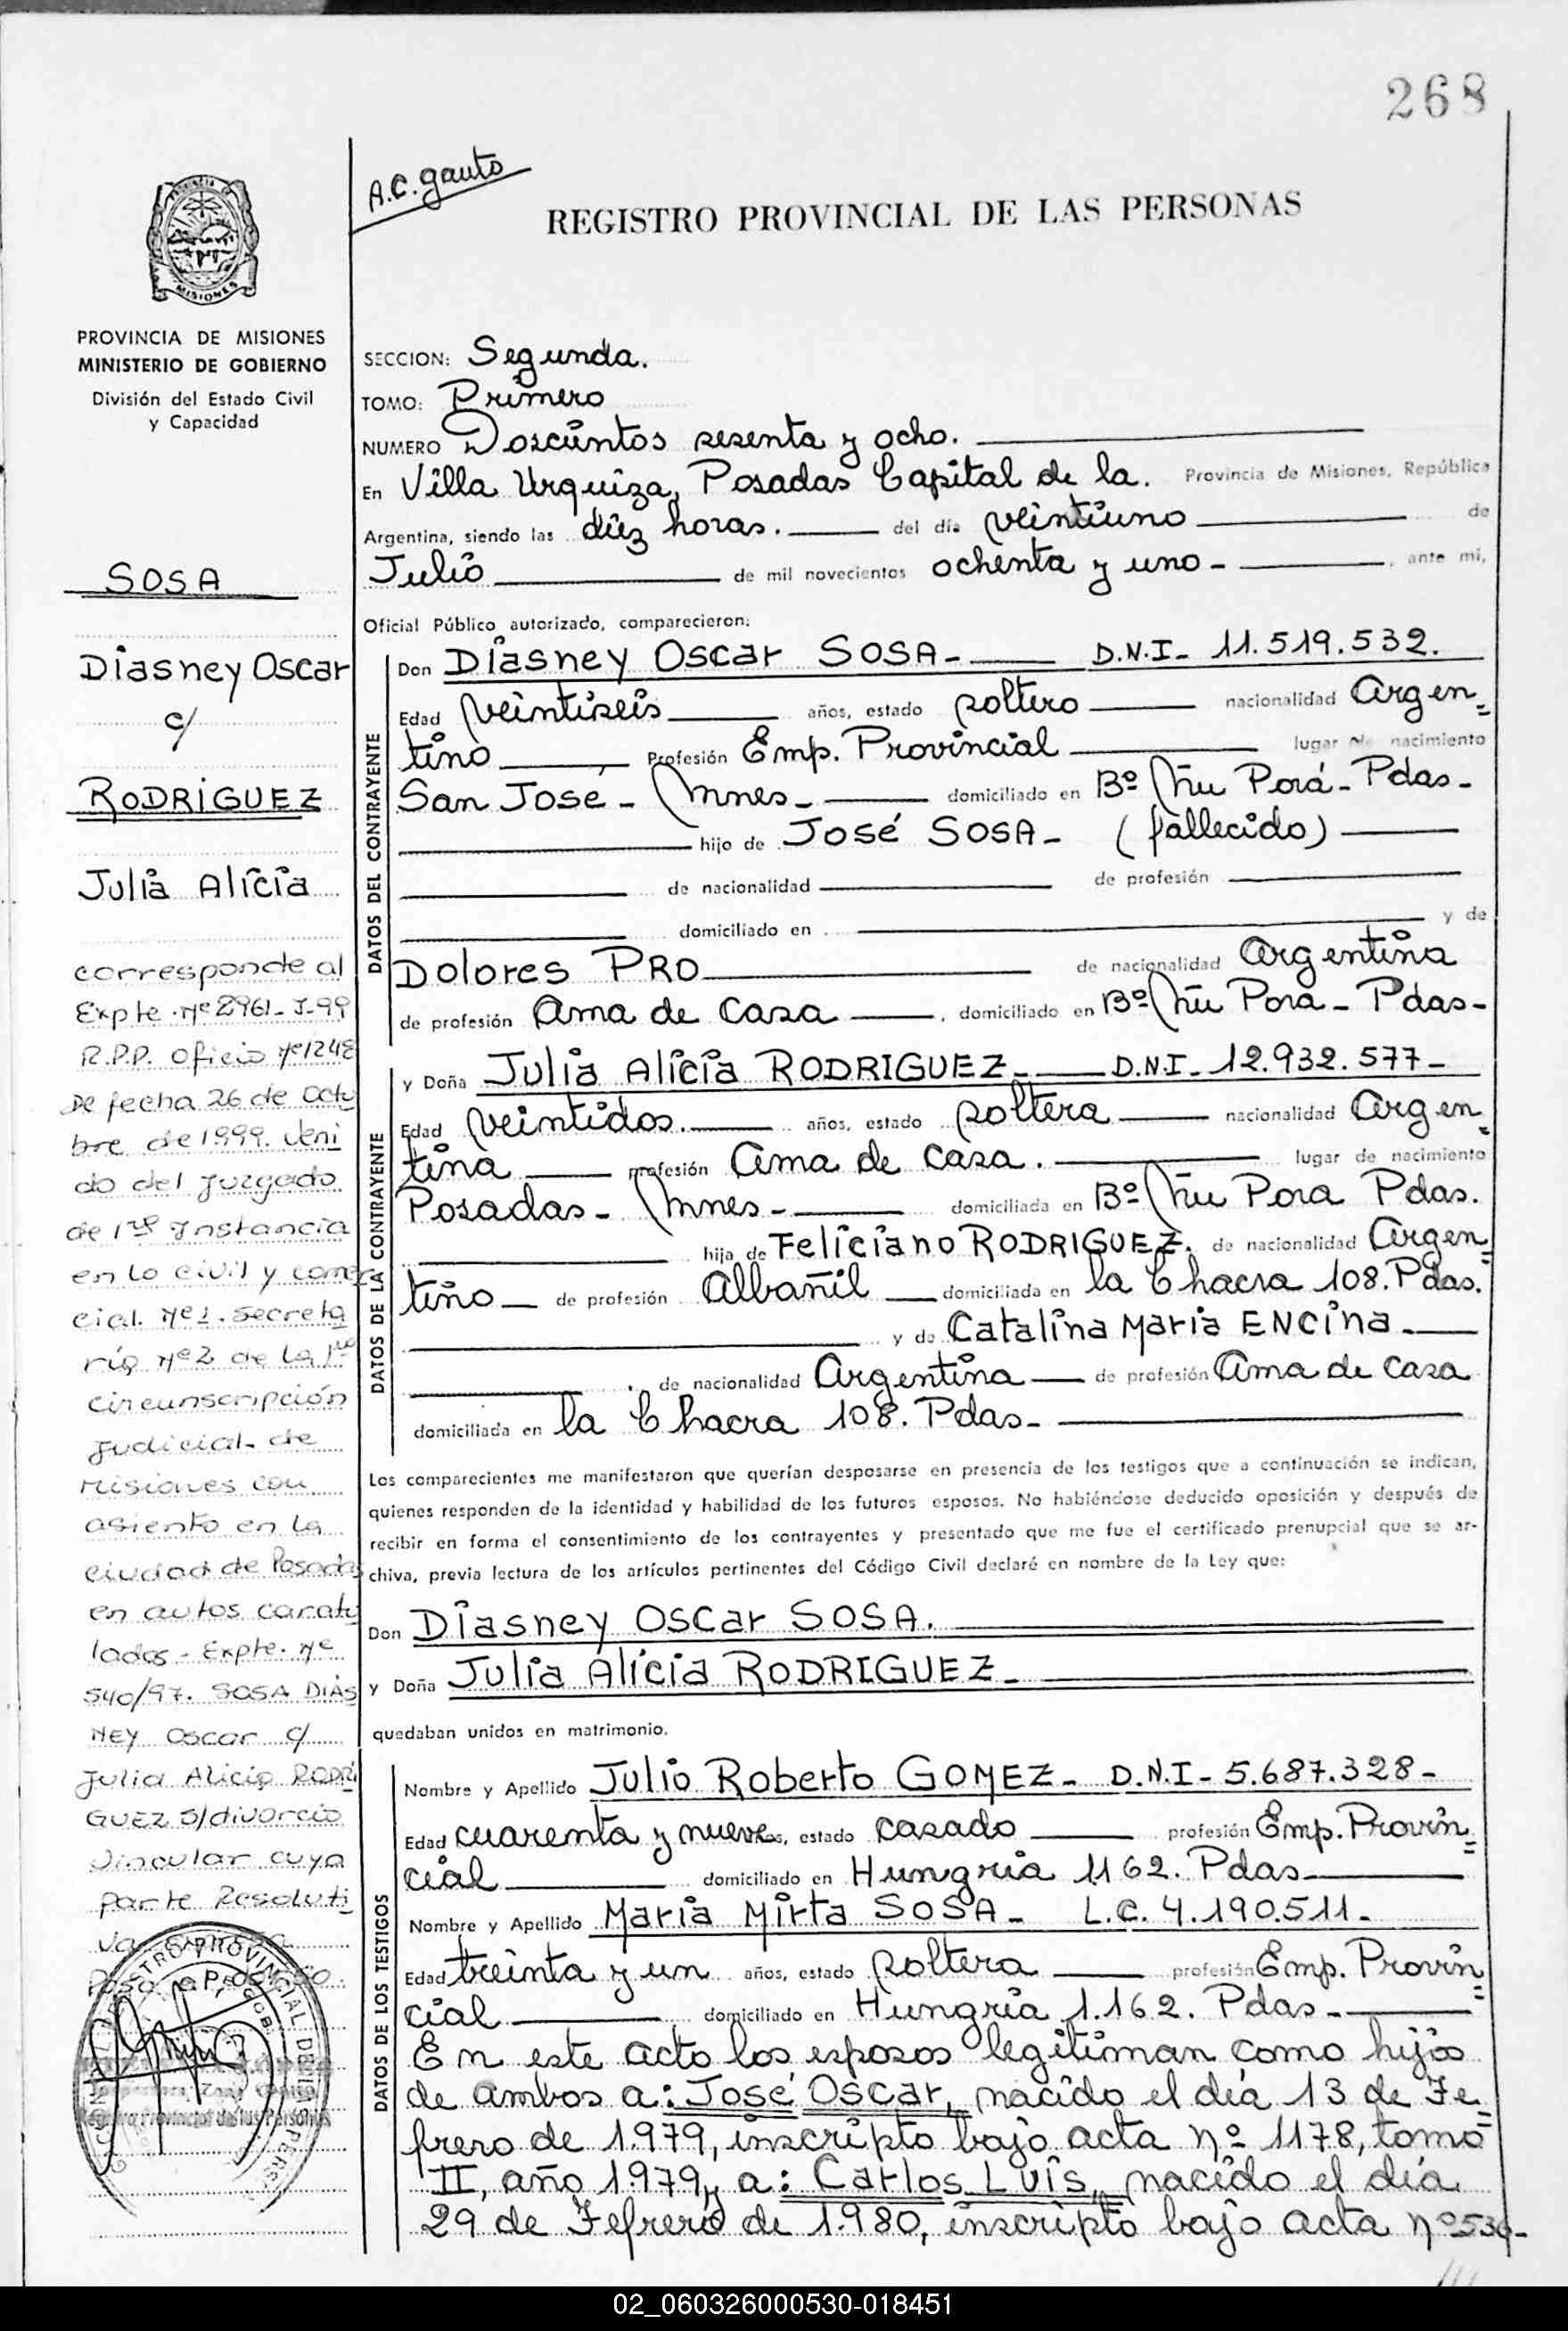 268
A.C. Gauto
REGISTRO PROVINCIAL DE LAS PERSONAS
MISIONES
PROVINCIA DE MISIONES
MINISTERIO DE GOBIERNO
División del Estado Civil
y Capacidad
SOSA
Diasney Oscar
c/
RODRIGUEZ
Julia Alicia
corresponde al
Expte. Nº 2961-J-99
R.P.P. Oficio Nº 1248
De fecha 26 de Octu
bre de 1999. Veni
do del Juzgado
de 1ra Instancia
en Lo Civil y Comer
cial. Nº 1. Secreta
ría Nº 2 de La 1ra
Circunscripción
Judicial de
Misiones con
asiento en La
Ciudad de Posadas
en autos caratu
lados - Expte. Nº
540/97. SOSA DIAS
NEY Oscar c/
Julia Alicia RODRI
GUEZ S/divorcio
Vincular cuya
parte Resoluti
va
SECCION: Segunda.
TOMO: Primero
NUMERO Doscientos sesenta y ocho.
En Villa Urquiza, Posadas Capital de la. Provincia de Misiones, República
Argentina, siendo las diez horas. del día veintiuno de
Julio de mil novecientos ochenta y uno - , ante mi,
Oficial Público autorizado, comparecieron:
DATOS DEL CONTRAYENTE
Don Diasney Oscar SOSA- D.N.I- 11.519.532.
Edad veintiseis años, estado soltero nacionalidad Argen=
tino Profesión Emp. Provincial lugar de nacimiento
San José - Mnes- domiciliado en Bº Ñu Porá- Pdas-
hijo de José SOSA- (fallecido)
de nacionalidad de profesión
domiciliado en y de
Dolores PRO de nacionalidad Argentina
de profesión Ama de Casa , domiciliado en Bº Ñu Pora- Pdas-
DATOS DE LA CONTRAYENTE
y Doña Julia Alicia RODRIGUEZ- D.N.I- 12.932.577-
Edad veintidos. años, estado soltera nacionalidad Argen=
tina profesión Ama de Casa. lugar de nacimiento
Posadas- Mnes- domiciliada en Bº Ñu Pora Pdas.
hija de Feliciano RODRIGUEZ. de nacionalidad Argen=
tino- de profesión Albañil domiciliada en la Chacra 108. Pdas.
y de Catalina Maria ENCINA.
de nacionalidad Argentina de profesión Ama de Casa
domiciliada en la Chacra 108. Pdas-
Los comparecientes me manifestaron que querían desposarse en presencia de los testigos que a continuación se indican,
quienes responden de la identidad y habilidad de los futuros esposos. No habiéndose deducido oposición y después de
recibir en forma el consentimiento de los contrayentes y presentado que me fue el certificado prenupcial que se ar-
chiva, previa lectura de los artículos pertinentes del Código Civil declaré en nombre de la Ley que:
Don Diasney Oscar SOSA.
y Doña Julia Alicia RODRIGUEZ-
quedaban unidos en matrimonio.
DATOS DE LOS TESTIGOS
Nombre y Apellido Julio Roberto GOMEZ- D.N.I- 5.687.328-
Edad cuarenta y nueve años, estado casado profesión Emp. Provin=
cial domiciliado en Hungria 1162. Pdas
Nombre y Apellido Maria Mirta SOSA- L.C. 4.190.511-
Edad treinta y un años, estado soltera profesión Emp. Provin=
cial domiciliado en Hungria 1.162. Pdas-
En este acto los esposos legitiman como hijos
de ambos a: José Oscar, nacido el día 13 de Fe=
brero de 1.979, inscripto bajo acta nº 1178, tomo
II, año 1.979, y a: Carlos Luis, nacido el día
29 de Febrero de 1.980, inscripto bajo acta nº 530-
02_060326000530-018451